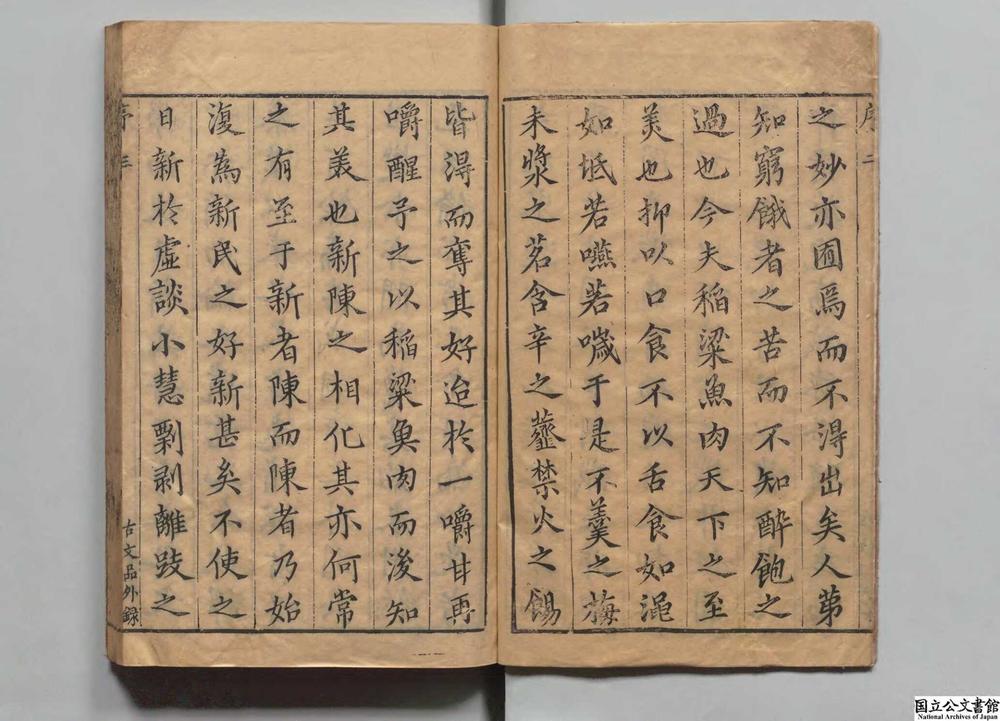 序 二
之妙亦囿焉而不得出矣人第
知窮餓者之苦而不知醉飽之
過也今夫稻粱魚肉天下之至
美也抑以口食不以舌食如澠
如坻若嚥若噦于是不羹之梅
未漿之茗含辛之虀禁火之餳
皆得而奪其好迨於一嚼甘再
嚼醒予之以稻粱魚肉而後知
其美也新陳之相化其亦何常
之有至于新者陳而陳者乃始
復為新民之好新甚矣不使之
日新於虛談小慧剽剥離跂之
序 三
古文品外録
国立公文書館
National Archives of Japan